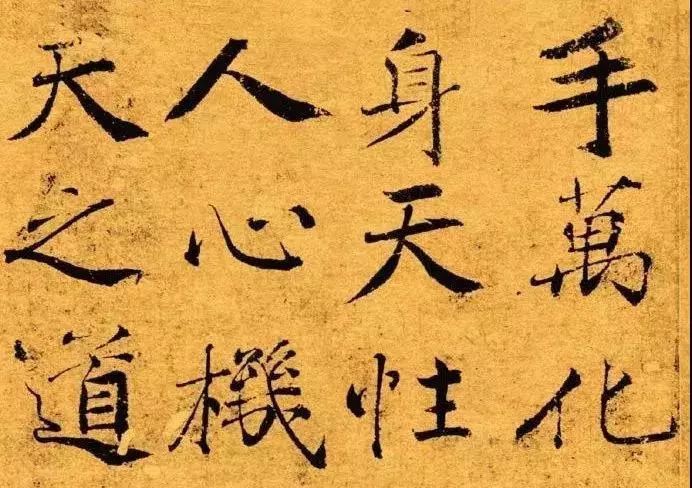 手萬化
身天性
人心機
天之道